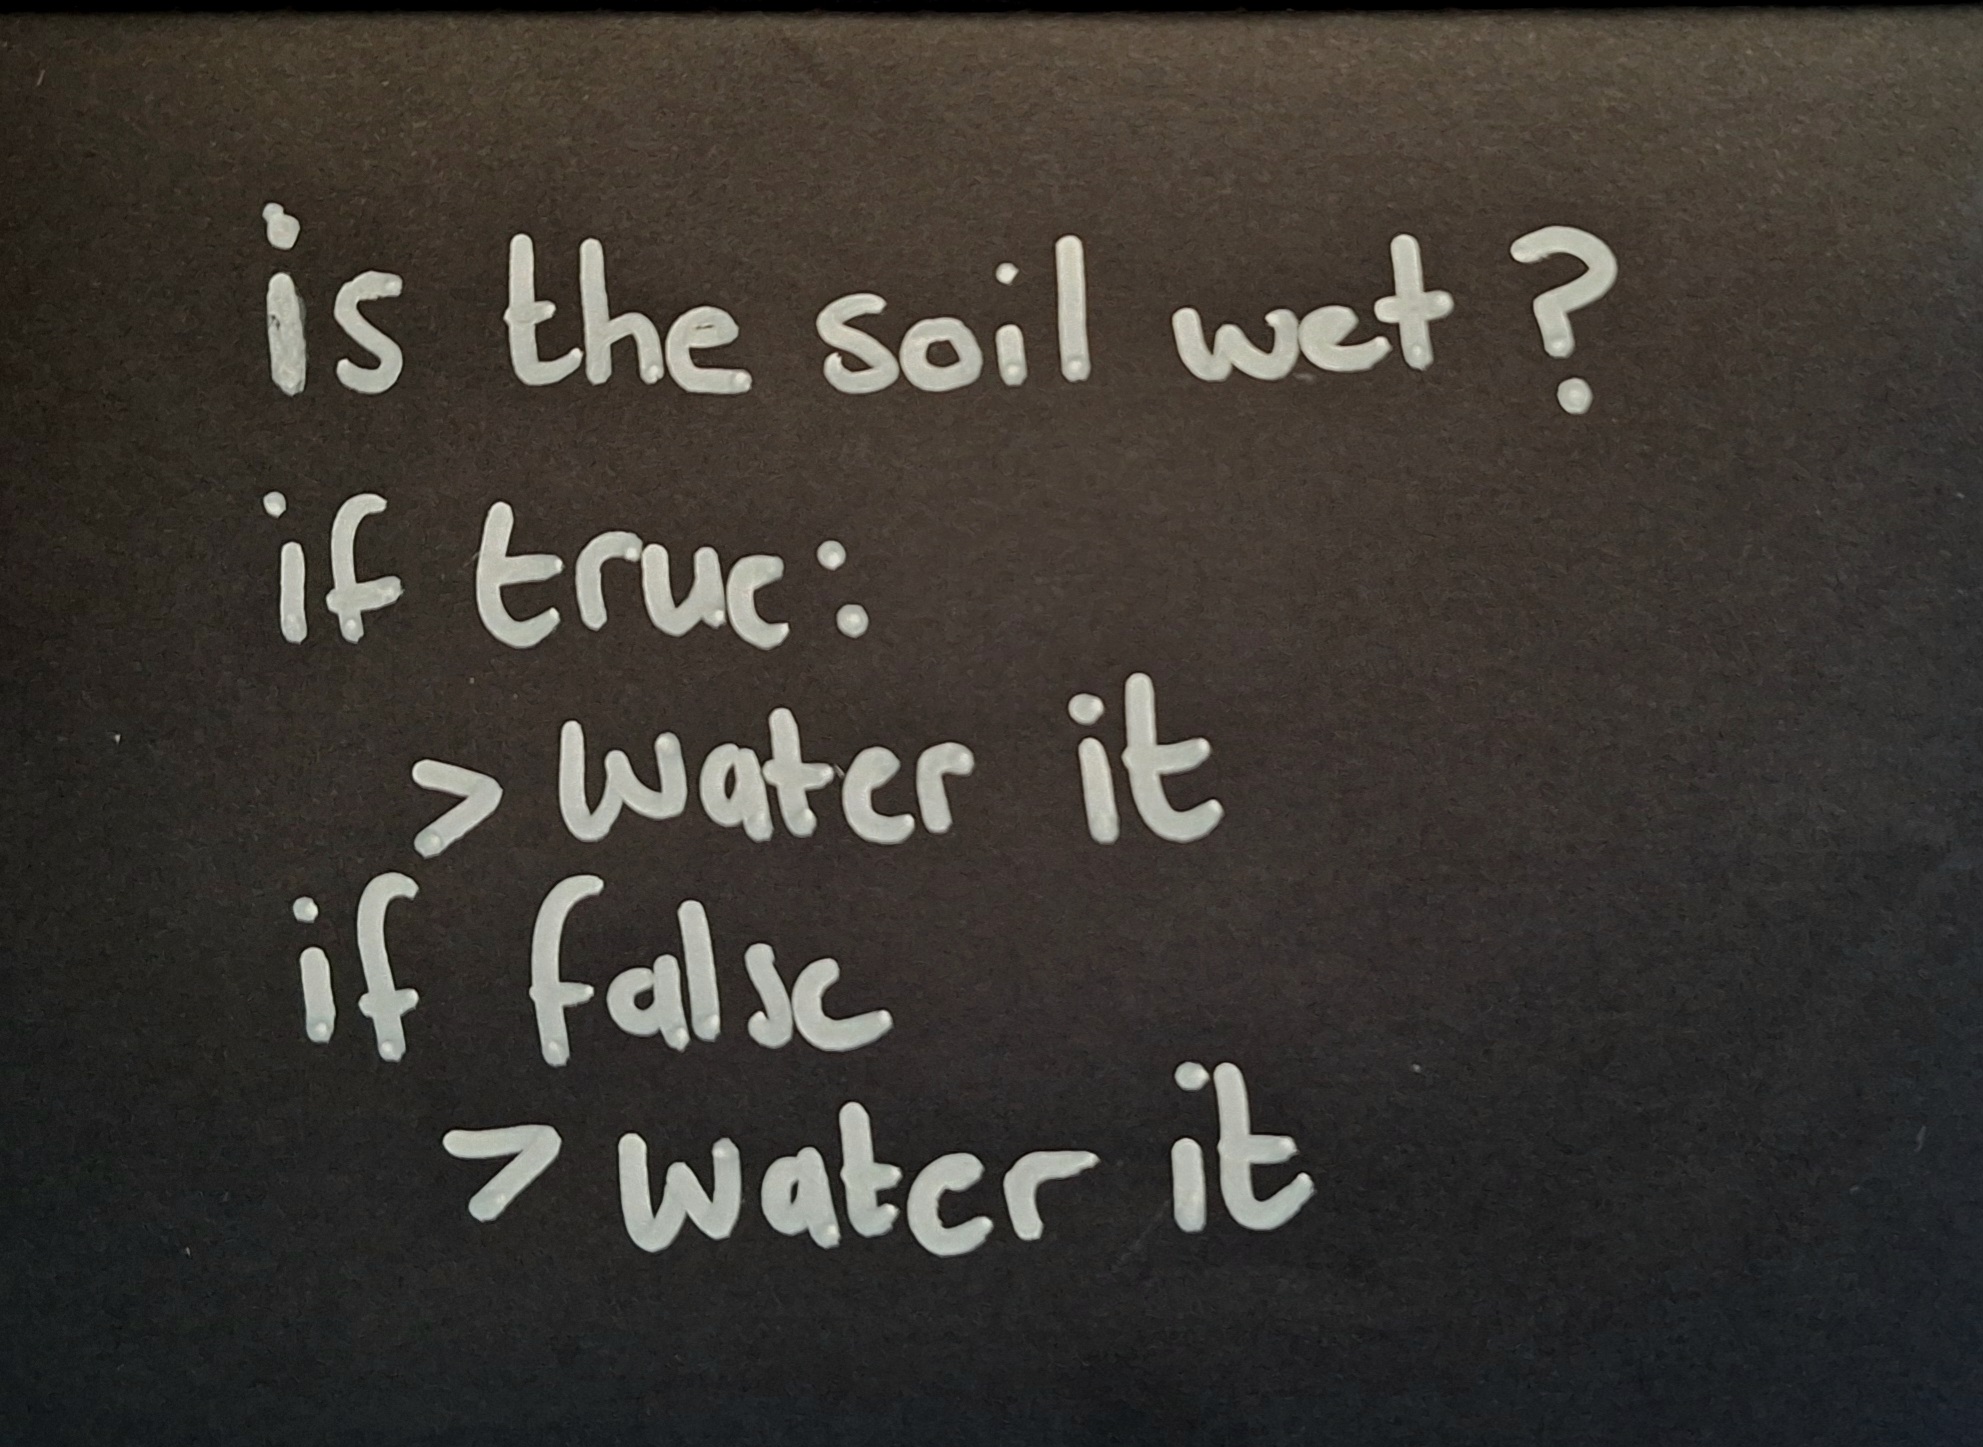 is the soil wet?
if true:
> water it
if false
> water it